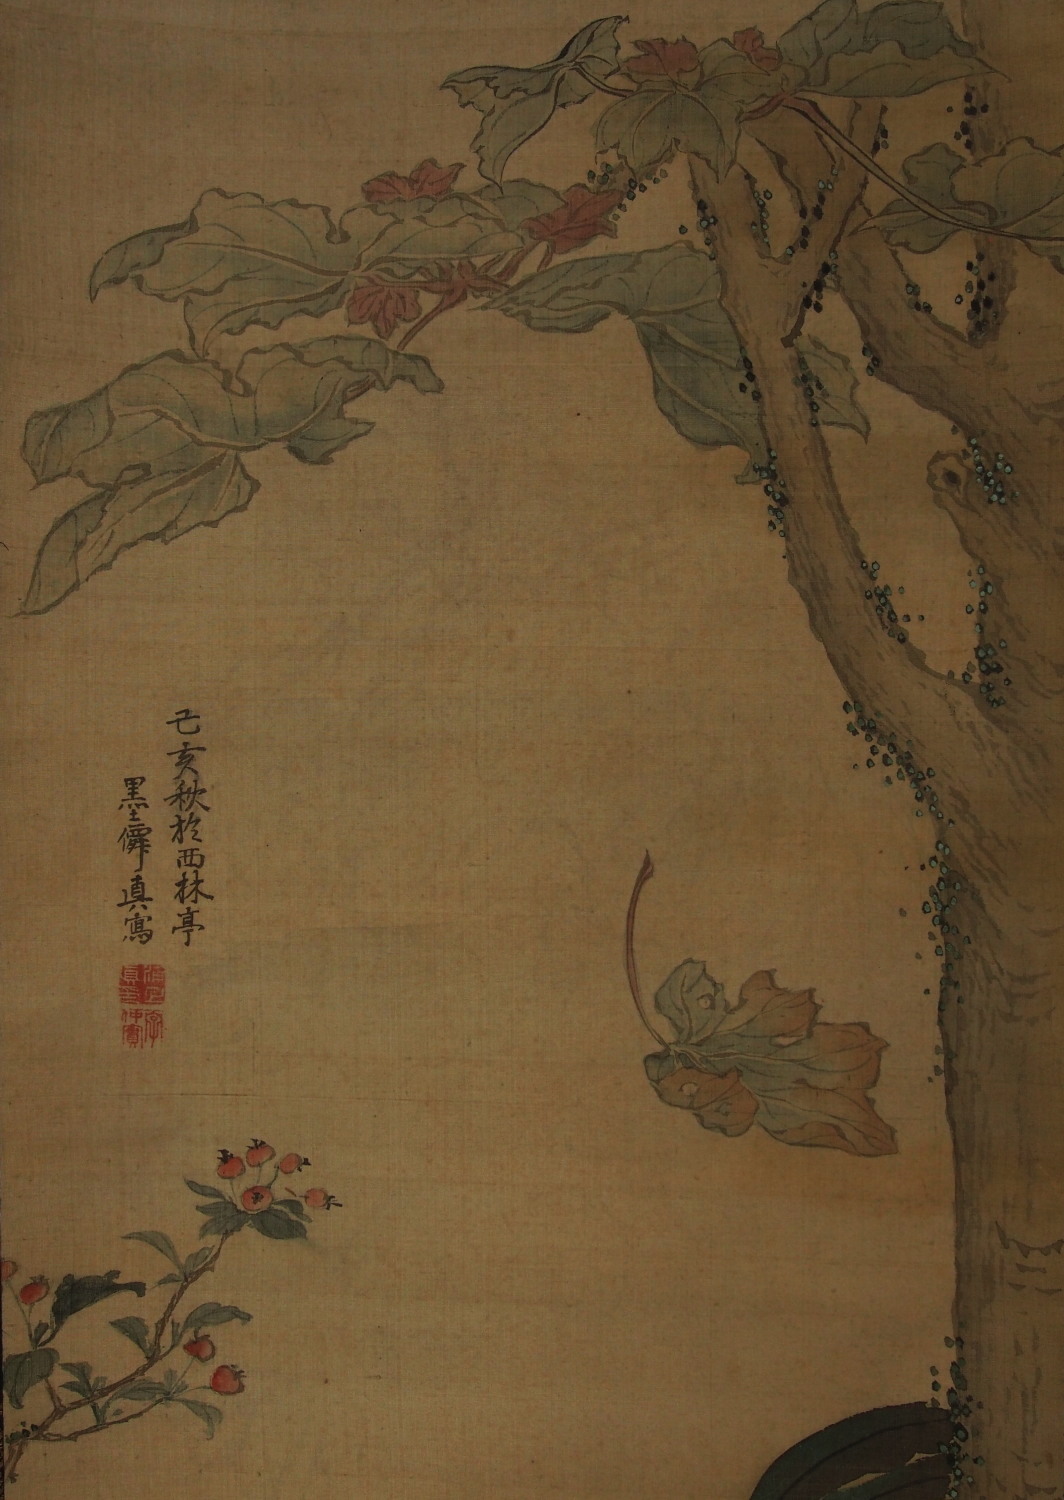 己亥秋於西林亭
墨僊真寫